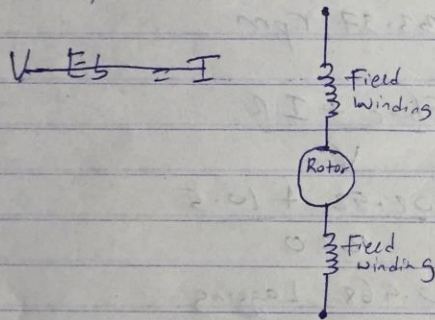 V - Eb = I
Field
winding
Rotor
Field
winding